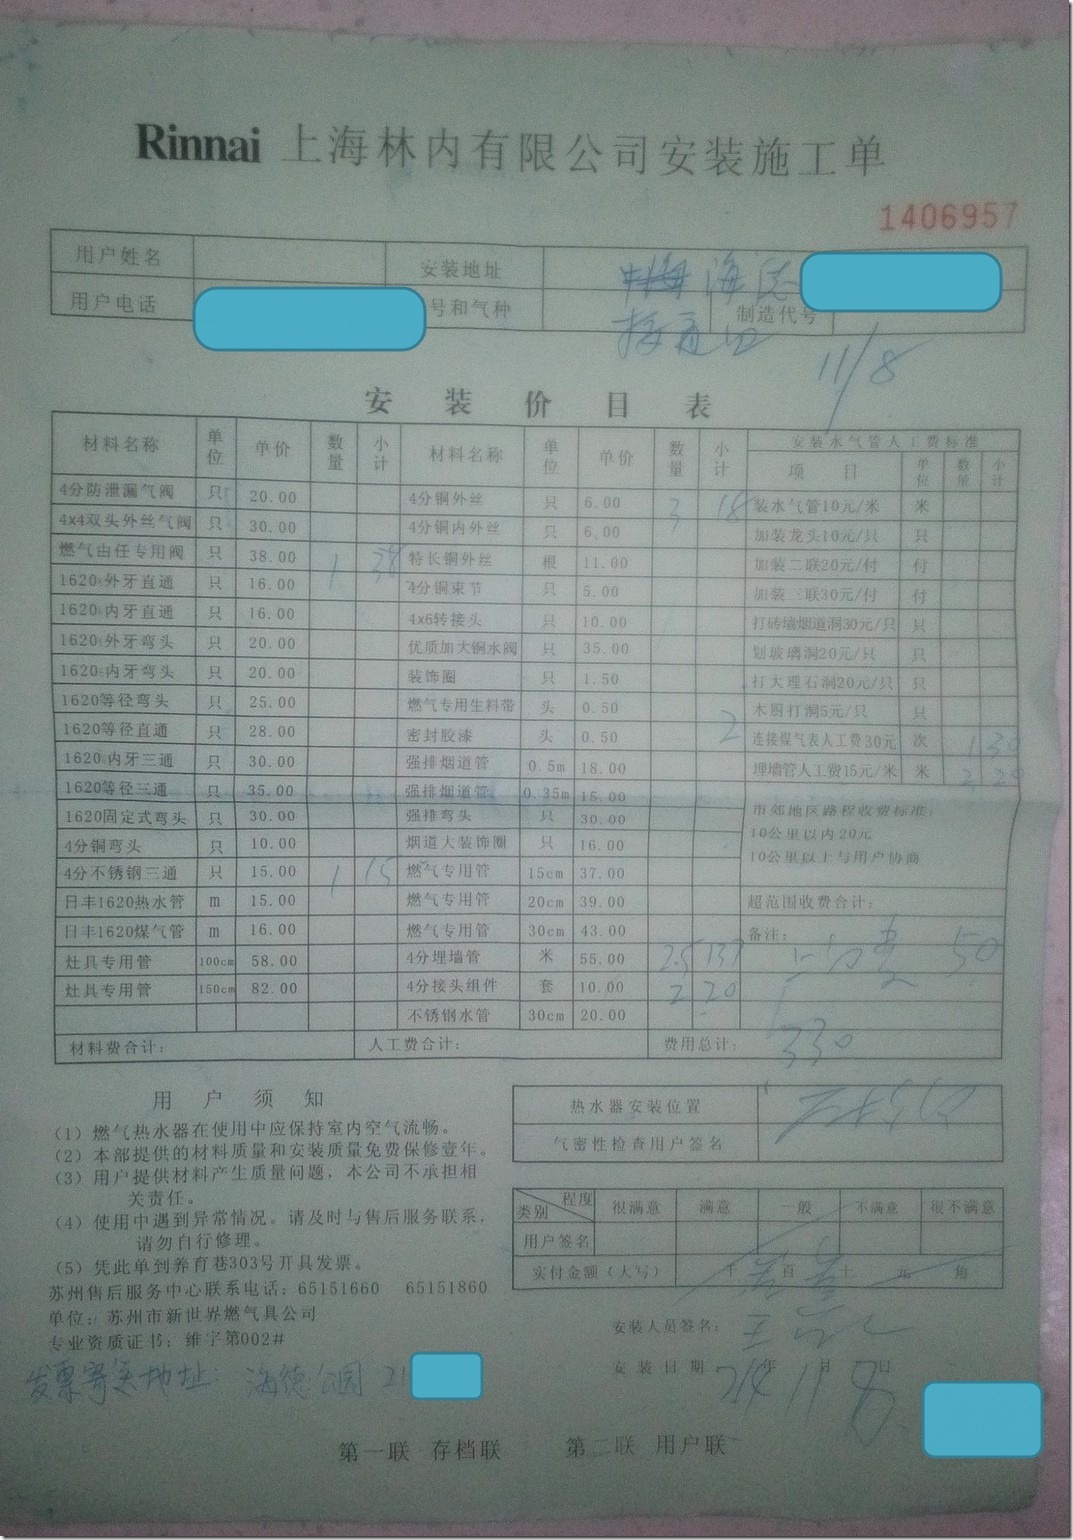 Rinnai 上海林内有限公司安装施工单
1406957
用户姓名 安装地址 海德
用户电话 号和气种 制造代号
11/8
安装价目表
材料名称 单位 单价 数量 小计 材料名称 单位 单价 数量 小计 安装水气管人工费标准
项目 单位 数量 小计
4分防泄漏气阀 只 20.00 4分铜外丝 只 6.00 3 18 装水气管10元/米 米
4x4双头外丝气阀 只 30.00 4分铜内外丝 只 6.00 加装龙头10元/只 只
燃气由任专用阀 只 38.00 1 38 特长铜外丝 根 11.00 加装二联20元/付 付
1620:外牙直通 只 16.00 4分铜束节 只 5.00 加装三联30元/付 付
1620:内牙直通 只 16.00 4x6转接头 只 10.00 打砖墙烟道洞30元/只 只
1620:外牙弯头 只 20.00 优质加大铜水阀 只 35.00 划玻璃洞20元/只 只
1620:内牙弯头 只 20.00 装饰圈 只 1.50 打大理石洞20元/只 只
1620等径弯头 只 25.00 燃气专用生料带 头 0.50 木厨打洞5元/只 只
1620等径直通 只 28.00 密封胶漆 头 0.50 2 连接煤气表人工费30元 次 1 30
1620:内牙三通 只 30.00 强排烟道管 0.5m 18.00 埋墙管人工费15元/米 米 2 20
1620等径三通 只 35.00 强排烟道管 0.35m 15.00 市郊地区路程收费标准:
1620固定式弯头 只 30.00 强排弯头 只 30.00 10公里以内20元
4分铜弯头 只 10.00 烟道大装饰圈 只 16.00 10公里以上与用户协商
4分不锈钢三通 只 15.00 1 15 燃气专用管 15cm 37.00
日丰1620热水管 m 15.00 燃气专用管 20cm 39.00 超范围收费合计:
日丰1620煤气管 m 16.00 燃气专用管 30cm 43.00 备注: 50
灶具专用管 100cm 58.00 4分埋墙管 米 55.00 2.5 137
灶具专用管 150cm 82.00 4分接头组件 套 10.00 2 20
不锈钢水管 30cm 20.00
材料费合计: 人工费合计: 费用总计: 330
用户须知
(1) 燃气热水器在使用中应保持室内空气流畅。
(2) 本部提供的材料质量和安装质量免费保修壹年。
(3) 用户提供材料产生质量问题,本公司不承担相
关责任。
(4) 使用中遇到异常情况。请及时与售后服务联系,
请勿自行修理。
(5) 凭此单到养育巷303号开具发票。
苏州售后服务中心联系电话: 65151660 65151860
单位: 苏州市新世界燃气具公司
专业资质证书: 维字第002#
热水器安装位置
气密性检查用户签名
程度 类别 很满意 满意 一般 不满意 很不满意
用户签名
实付金额(大写) 千 百 十 元 角
安装人员签名: 王
安装日期 214年 11月 8日
发票寄送地址: 海德公园 21
第一联 存档联 第二联 用户联